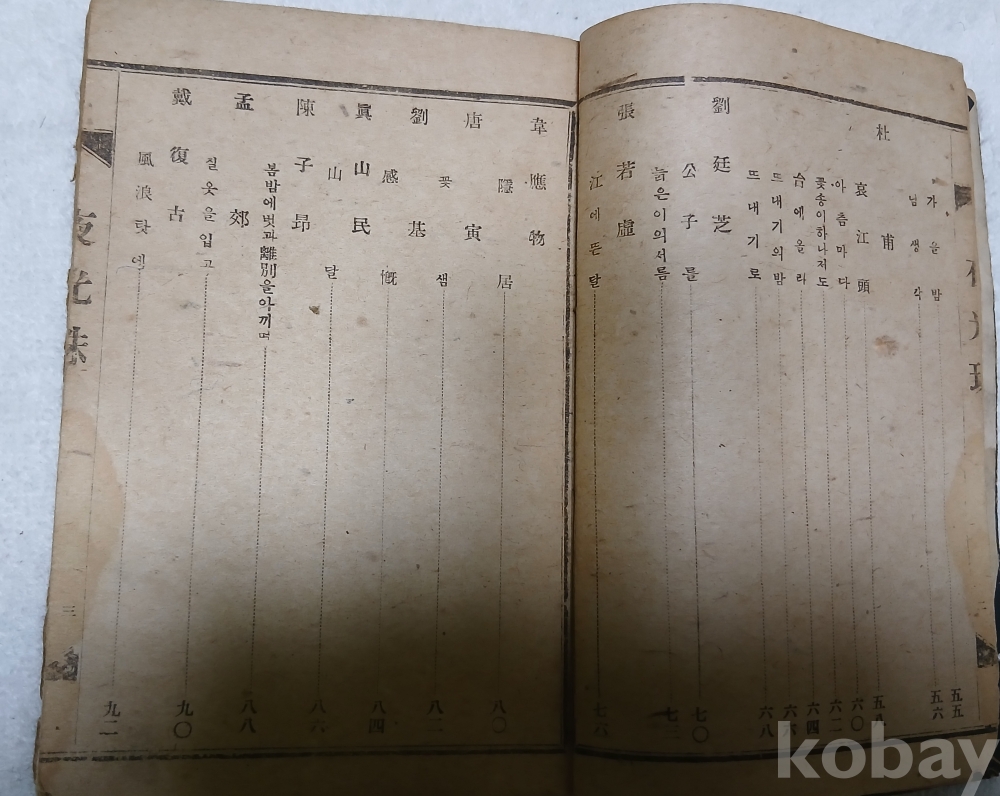 가을밤 五五
님생각 五六
杜甫
哀江頭 五八
아츰마다 六〇
꽃송이하나저도 六二
台에올라 六四
뜨내기의밤 六六
뜨내기로 六八
劉廷芝
公子를 七〇
늙은이의서름 七二
張若虛
江에뜬달 七六
韋應物
隱居 八〇
唐寅
꽃 八二
劉基
샘
感慨 八四
眞山民
山달 八六
陳子昂
봄밤에벗과離別을앗기며 八八
孟郊
칠옷을입고 九〇
戴復古
風浪탓에 九二
三
夜光珠
kobay